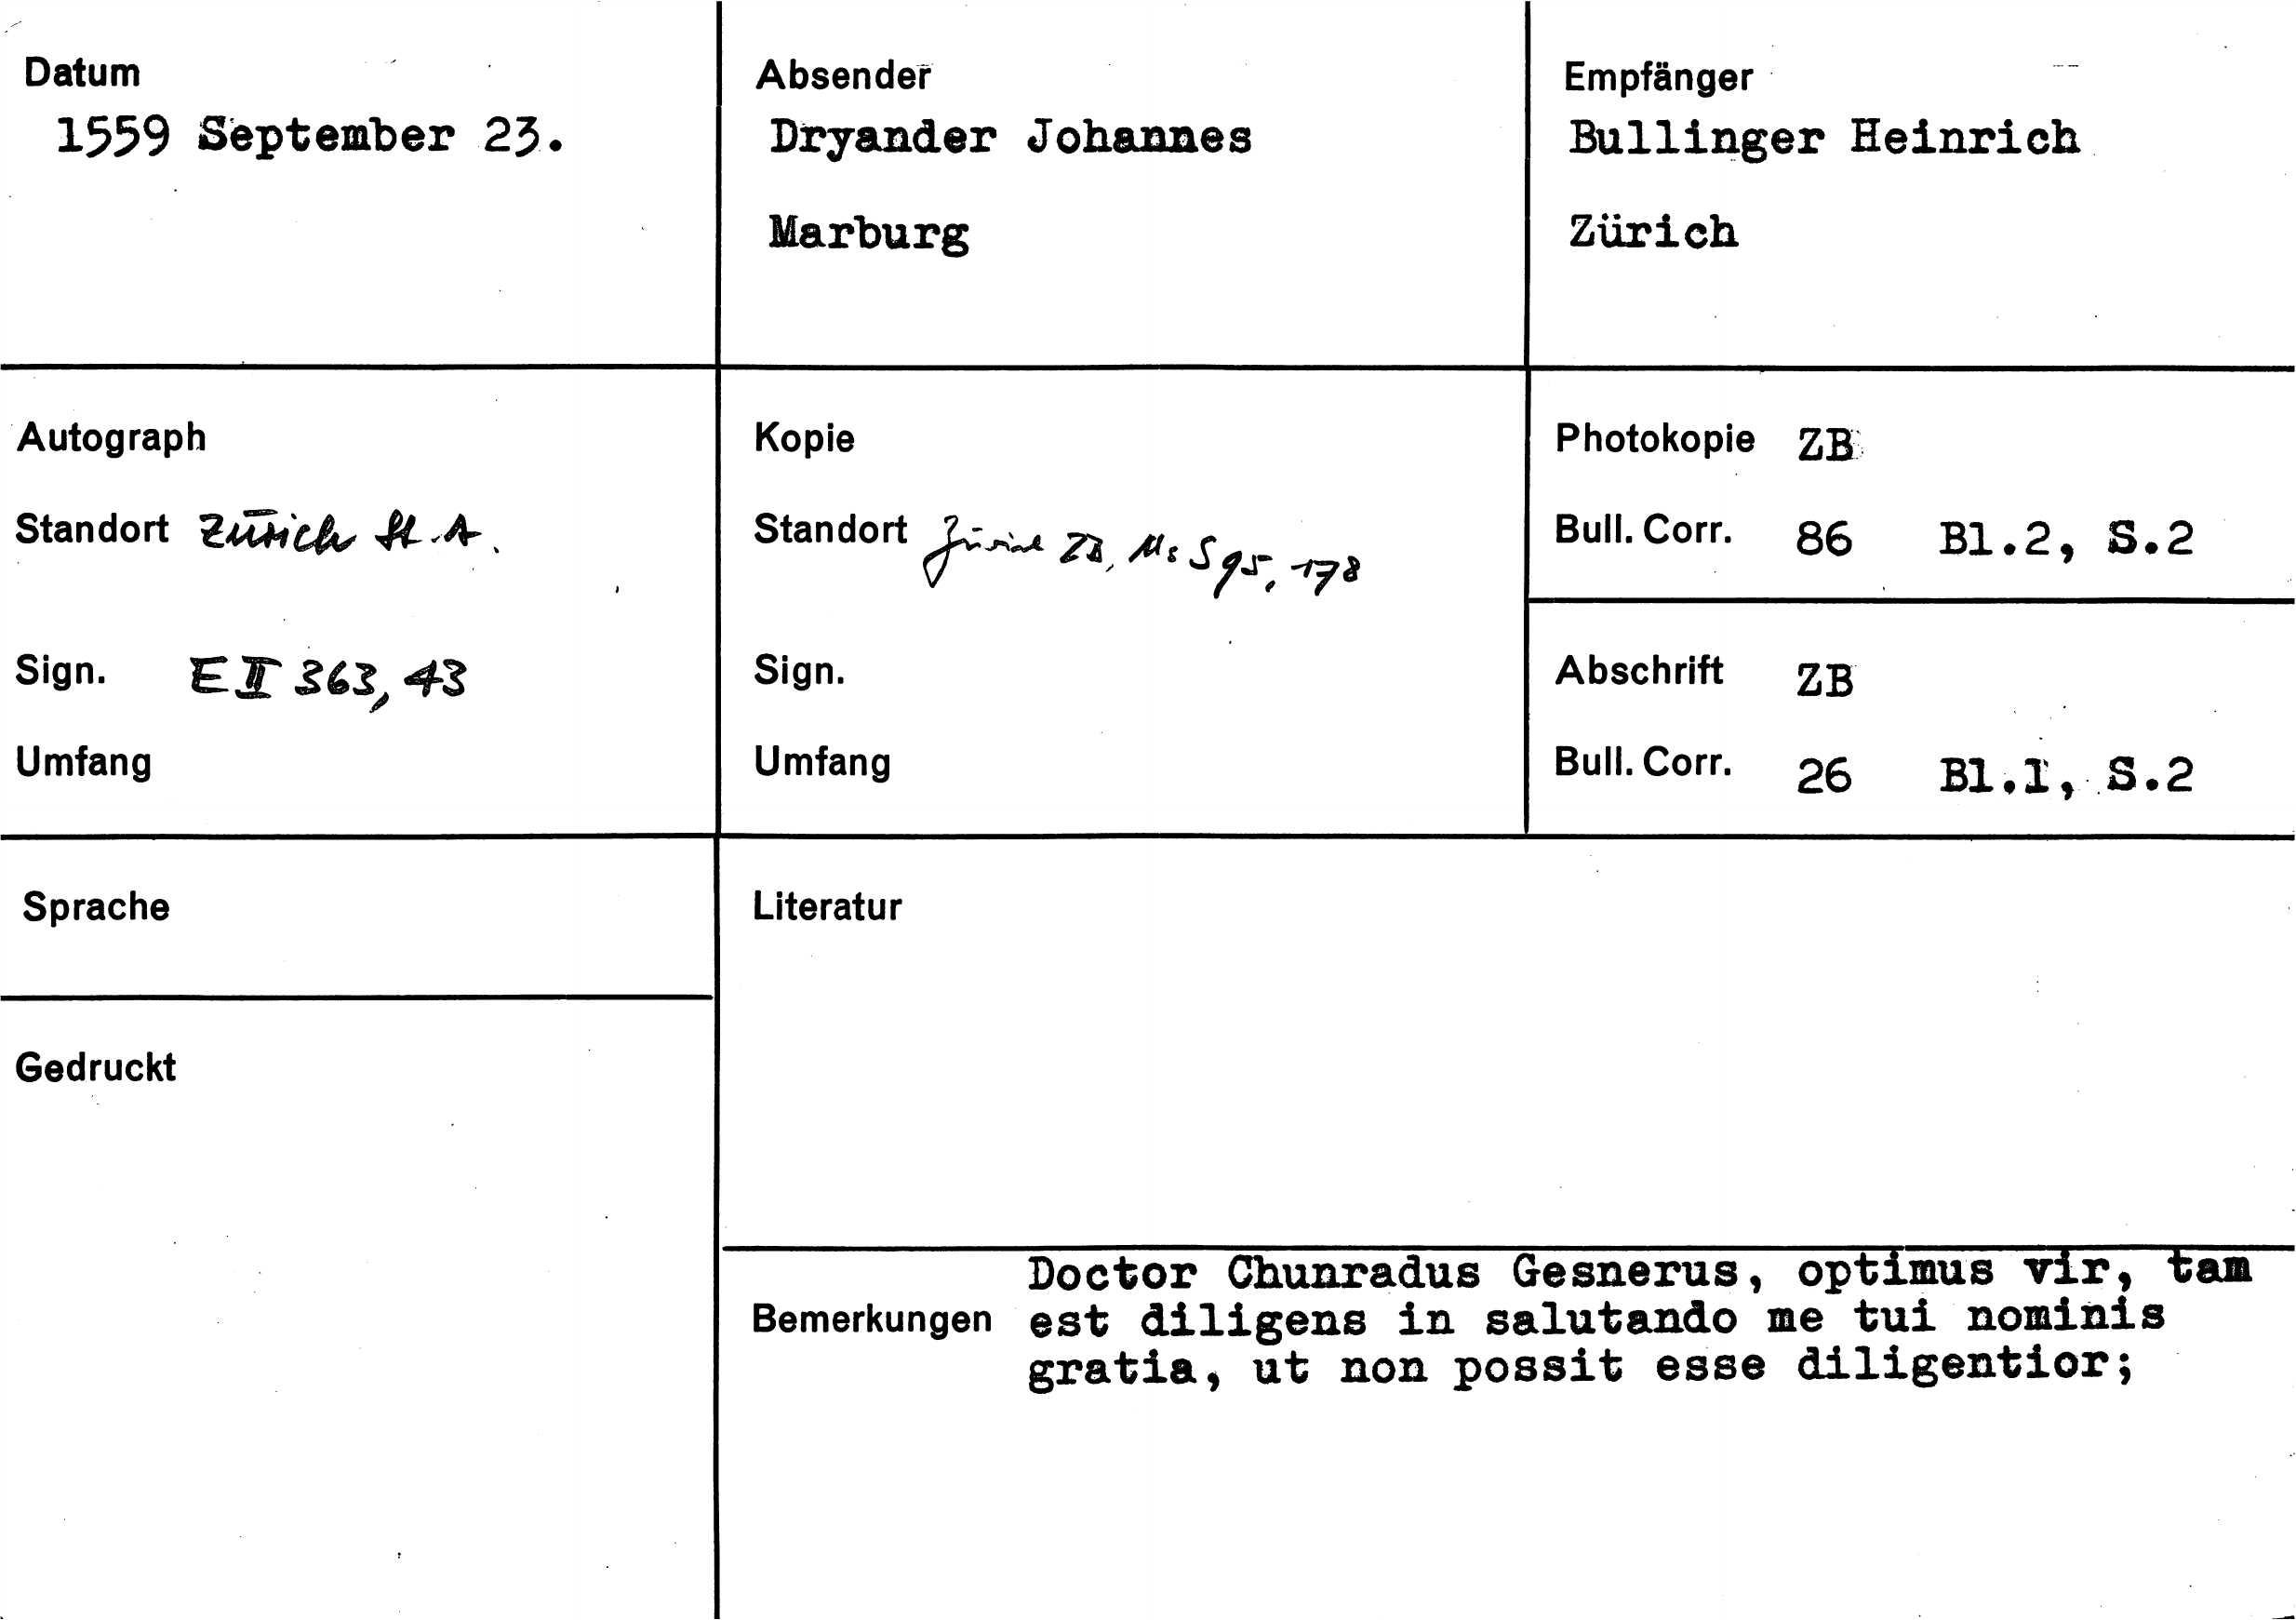 Datum
1559 September 23.
Absender
Dryander Johannes
Marburg
Empfänger
Bullinger Heinrich
Zürich
Autograph
Standort Zürich St.A.
Sign. E II 363, 43
Umfang
Kopie
Standort Zürich ZB, Ms S 95, 178
Sign.
Umfang
Photokopie ZB
Bull. Corr. 86 Bl.2, S.2
Abschrift ZB
Bull. Corr. 26 Bl.1, S.2
Sprache
Gedruckt
Literatur
Bemerkungen
Doctor Chunradus Gesnerus, optimus vir, tam
est diligens in salutando me tui nominis
gratia, ut non possit esse diligentior;